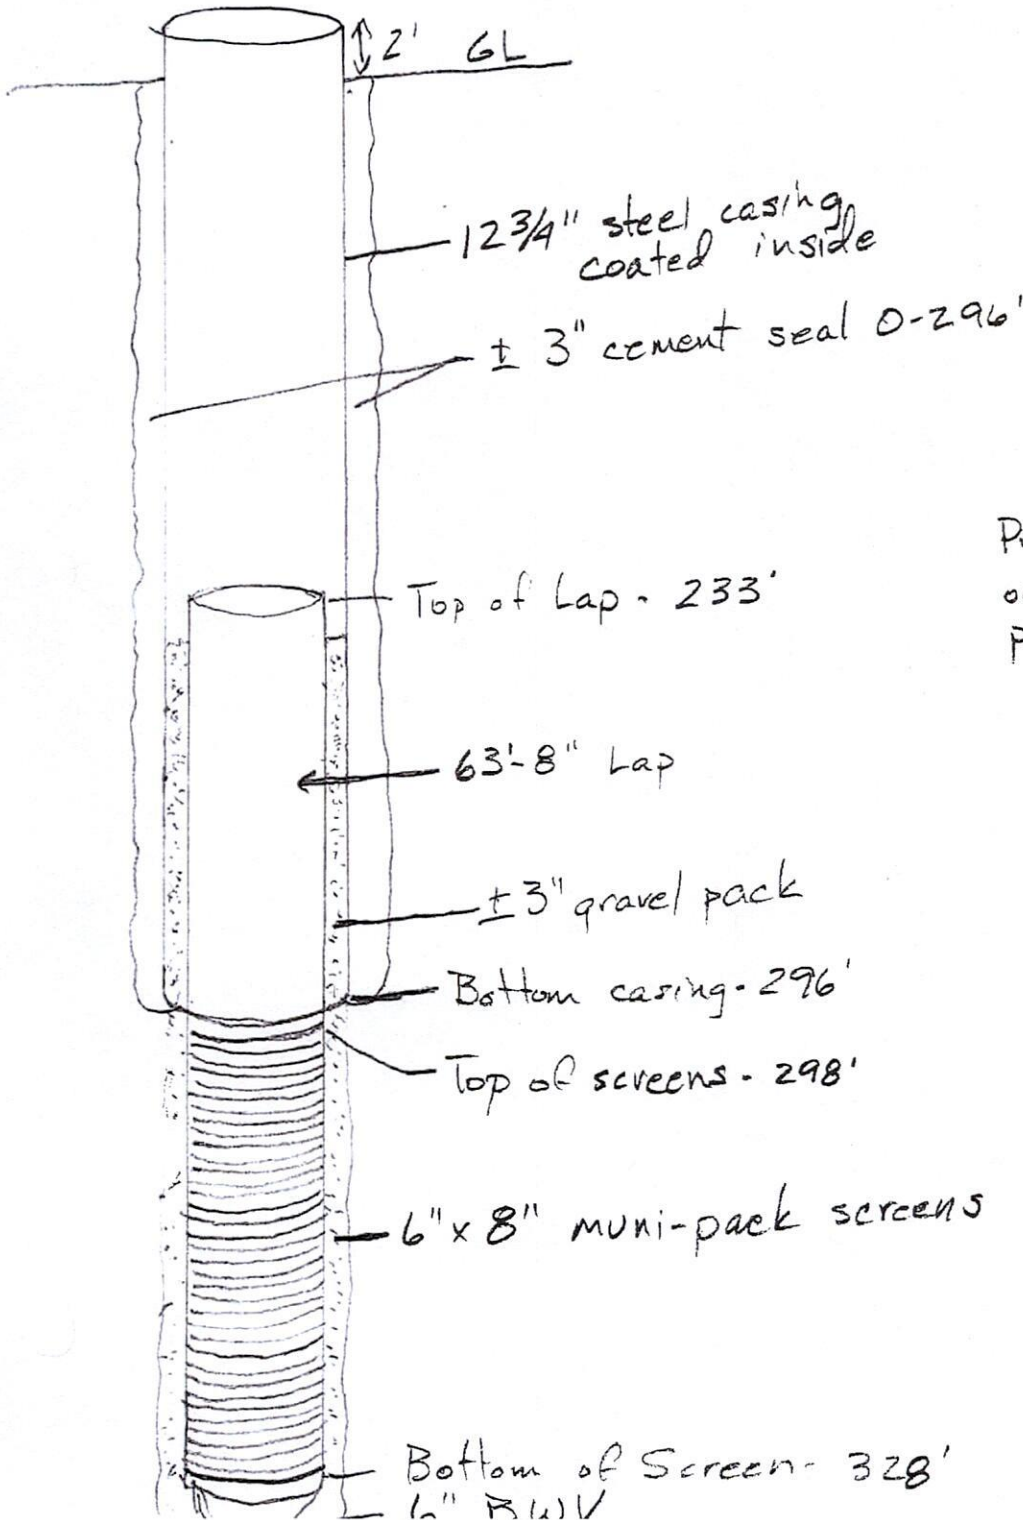 2' GL
12 3/4" steel casing
coated inside
± 3" cement seal 0-296'
Top of Lap - 233'
63'-8" Lap
± 3" gravel pack
Bottom casing - 296'
Top of screens - 298'
6" x 8" muni-pack screens
Bottom of Screen - 328'
6" BWV